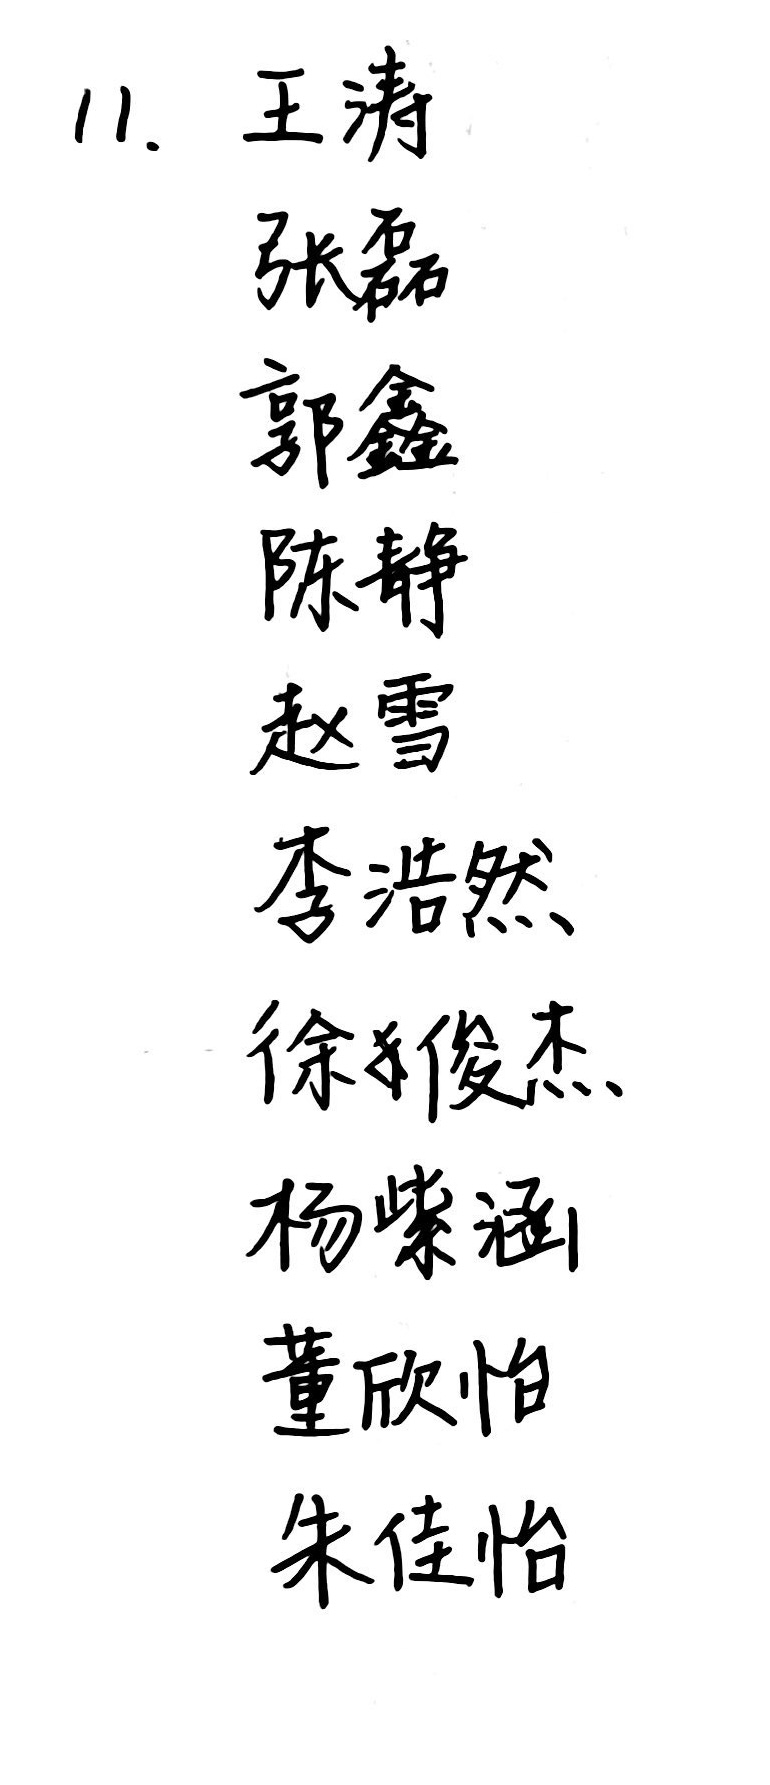 11. 王涛
张磊
郭鑫
陈静
赵雪
李浩然
徐俊杰
杨紫涵
董欣怡
朱佳怡